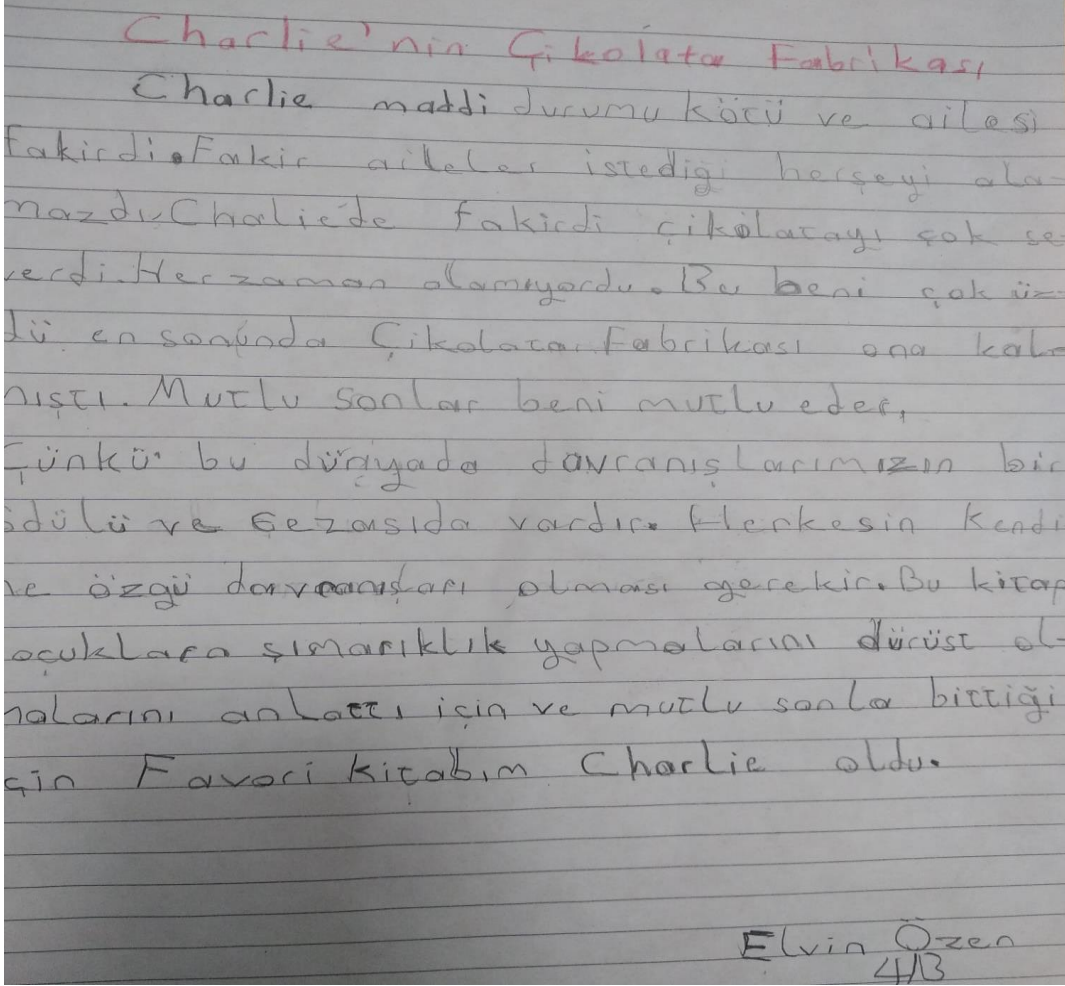 Charlie'nin Çikolata Fabrikası
Charlie maddi durumu kötü ve ailesi
fakirdi. Fakir aileler istediği herşeyi ala-
mazdı. Chalie'de fakirdi çikolatayı çok se
verdi. Her zaman alamıyordu. Bu beni çok üz-
dü en sonunda Çikolata Fabrikası ona kal-
mıştı. Mutlu sonlar beni mutlu eder,
Çünkü bu dünyada davranışlarımızın bir
ödülü ve cezasıda vardır. Herkesin kendi
ne özgü davranışları olması gerekir. Bu kitap
ocuklara şımarıklık yapmalarını dürüst ol-
malarını anlattı için ve mutlu sonla bittiği
çin Favori kitabım Charlie oldu.
Elvin Özen
4/B